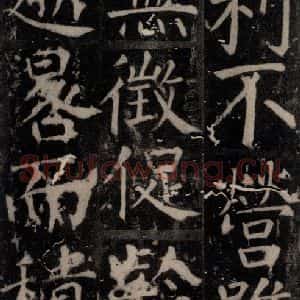 利不營
無徵促齡
晷而積
Shufawang.cn